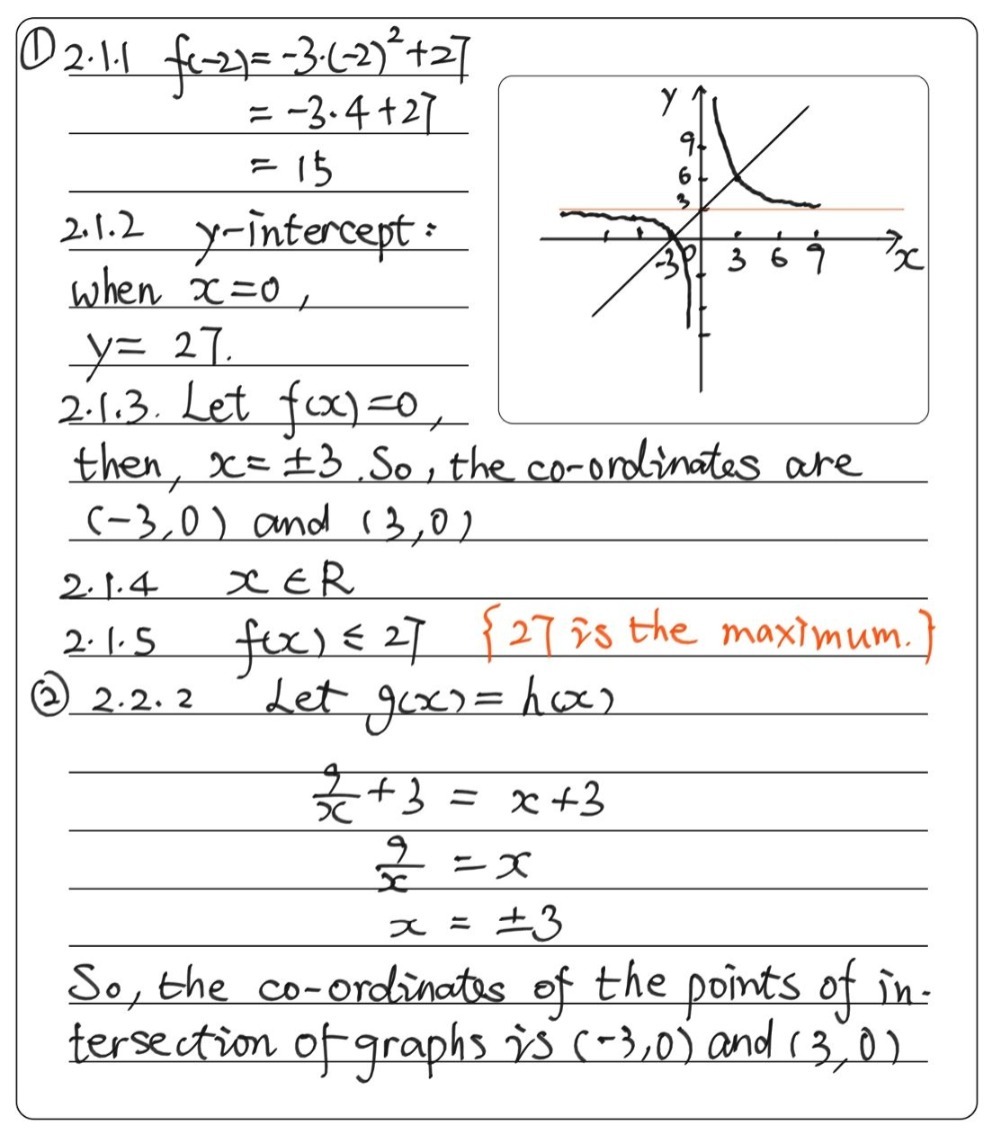 ① 2.1.1 f(-2)=-3·(-2)²+27
= -3·4+27
= 15
2.1.2 y-intercept:
when x=0,
y= 27.
2.1.3. Let f(x)=0,
then, x= ±3. So, the co-ordinates are
(-3,0) and (3,0)
2.1.4 x∈R
2.1.5 f(x) ≤ 27 {27 is the maximum.}
② 2.2.2 Let g(x) = h(x)
9/x + 3 = x+3
9/x = x
x = ±3
So, the co-ordinates of the points of in-
tersection of graphs is (-3,0) and (3,0)
y
9
6
3
-3 0 3 6 9 x